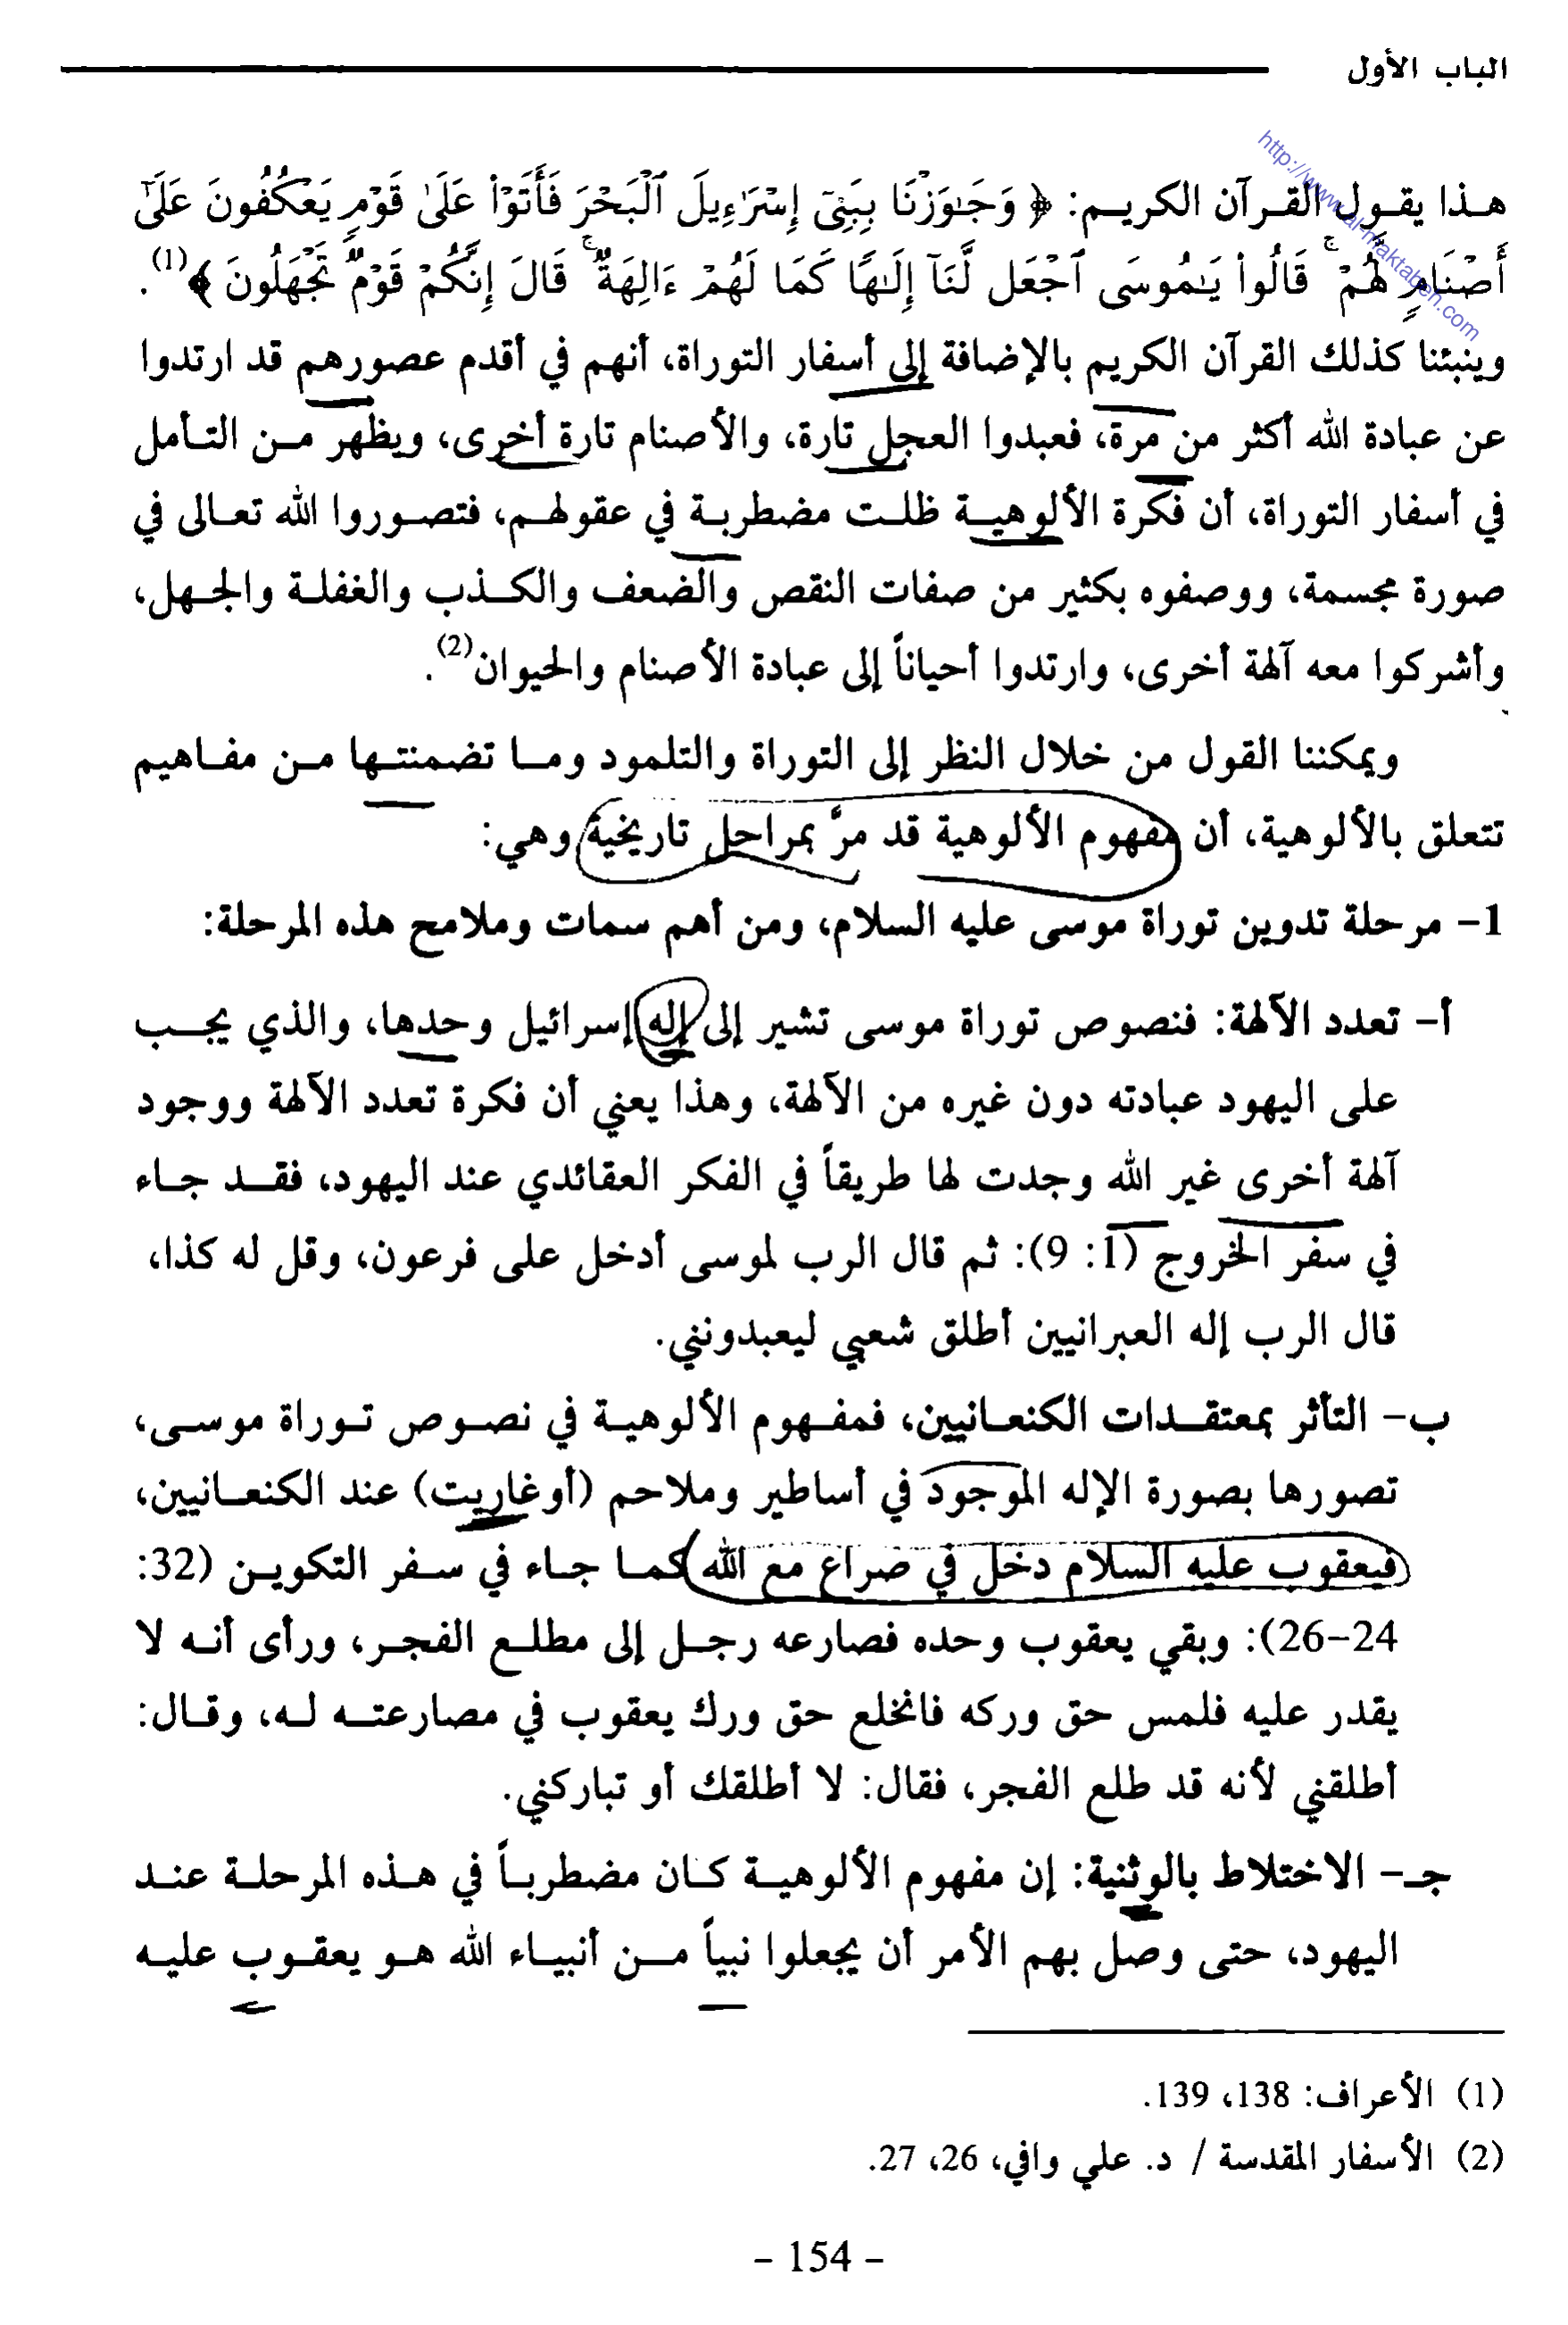 الباب الأول
http://www.al-maktabeh.com
هذا يقول القرآن الكريم: ﴿ وَجَٰوَزْنَا بِبَنِىٓ إِسْرَٰٓءِيلَ ٱلْبَحْرَ فَأَتَوْا۟ عَلَىٰ قَوْمٍ يَعْكُفُونَ عَلَىٰٓ
أَصْنَامٍ لَّهُمْ ۚ قَالُوا۟ يَٰمُوسَى ٱجْعَل لَّنَآ إِلَٰهًا كَمَا لَهُمْ ءَالِهَةٌ ۚ قَالَ إِنَّكُمْ قَوْمٌ تَجْهَلُونَ ﴾(1).
وينبئنا كذلك القرآن الكريم بالإضافة إلى أسفار التوراة، أنهم في أقدم عصورهم قد ارتدوا
عن عبادة الله أكثر من مرة، فعبدوا العجل تارة، والأصنام تارة أخرى، ويظهر من التأمل
في أسفار التوراة، أن فكرة الألوهية ظلت مضطربة في عقولهم، فتصوروا الله تعالى في
صورة مجسمة، ووصفوه بكثير من صفات النقص والضعف والكذب والغفلة والجهل،
وأشركوا معه آلهة أخرى، وارتدوا أحياناً إلى عبادة الأصنام والحيوان(2).
ويمكننا القول من خلال النظر إلى التوراة والتلمود وما تضمنتها من مفاهيم
تتعلق بالألوهية، أن مفهوم الألوهية قد مرَّ بمراحل تاريخية وهي:
1- مرحلة تدوين توراة موسى عليه السلام، ومن أهم سمات وملامح هذه المرحلة:
أ- تعدد الآلهة: فنصوص توراة موسى تشير إلى إله إسرائيل وحدها، والذي يجب
على اليهود عبادته دون غيره من الآلهة، وهذا يعني أن فكرة تعدد الآلهة ووجود
آلهة أخرى غير الله وجدت لها طريقاً في الفكر العقائدي عند اليهود، فقد جاء
في سفر الخروج (1: 9): ثم قال الرب لموسى أدخل على فرعون، وقل له كذا،
قال الرب إله العبرانيين أطلق شعبي ليعبدونني.
ب- التأثر بمعتقدات الكنعانيين، فمفهوم الألوهية في نصوص توراة موسى،
تصورها بصورة الإله الموجود في أساطير وملاحم (أوغاريت) عند الكنعانيين،
فيعقوب عليه السلام دخل في صراع مع الله كما جاء في سفر التكوين (32:
24-26): وبقي يعقوب وحده فصارعه رجل إلى مطلع الفجر، ورأى أنه لا
يقدر عليه فلمس حق وركه فانخلع حق ورك يعقوب في مصارعته له، وقال:
أطلقني لأنه قد طلع الفجر، فقال: لا أطلقك أو تباركني.
جـ- الاختلاط بالوثنية: إن مفهوم الألوهية كان مضطرباً في هذه المرحلة عند
اليهود، حتى وصل بهم الأمر أن يجعلوا نبياً من أنبياء الله هو يعقوب عليه
(1) الأعراف: 138، 139.
(2) الأسفار المقدسة / د. علي وافي، 26، 27.
- 154 -